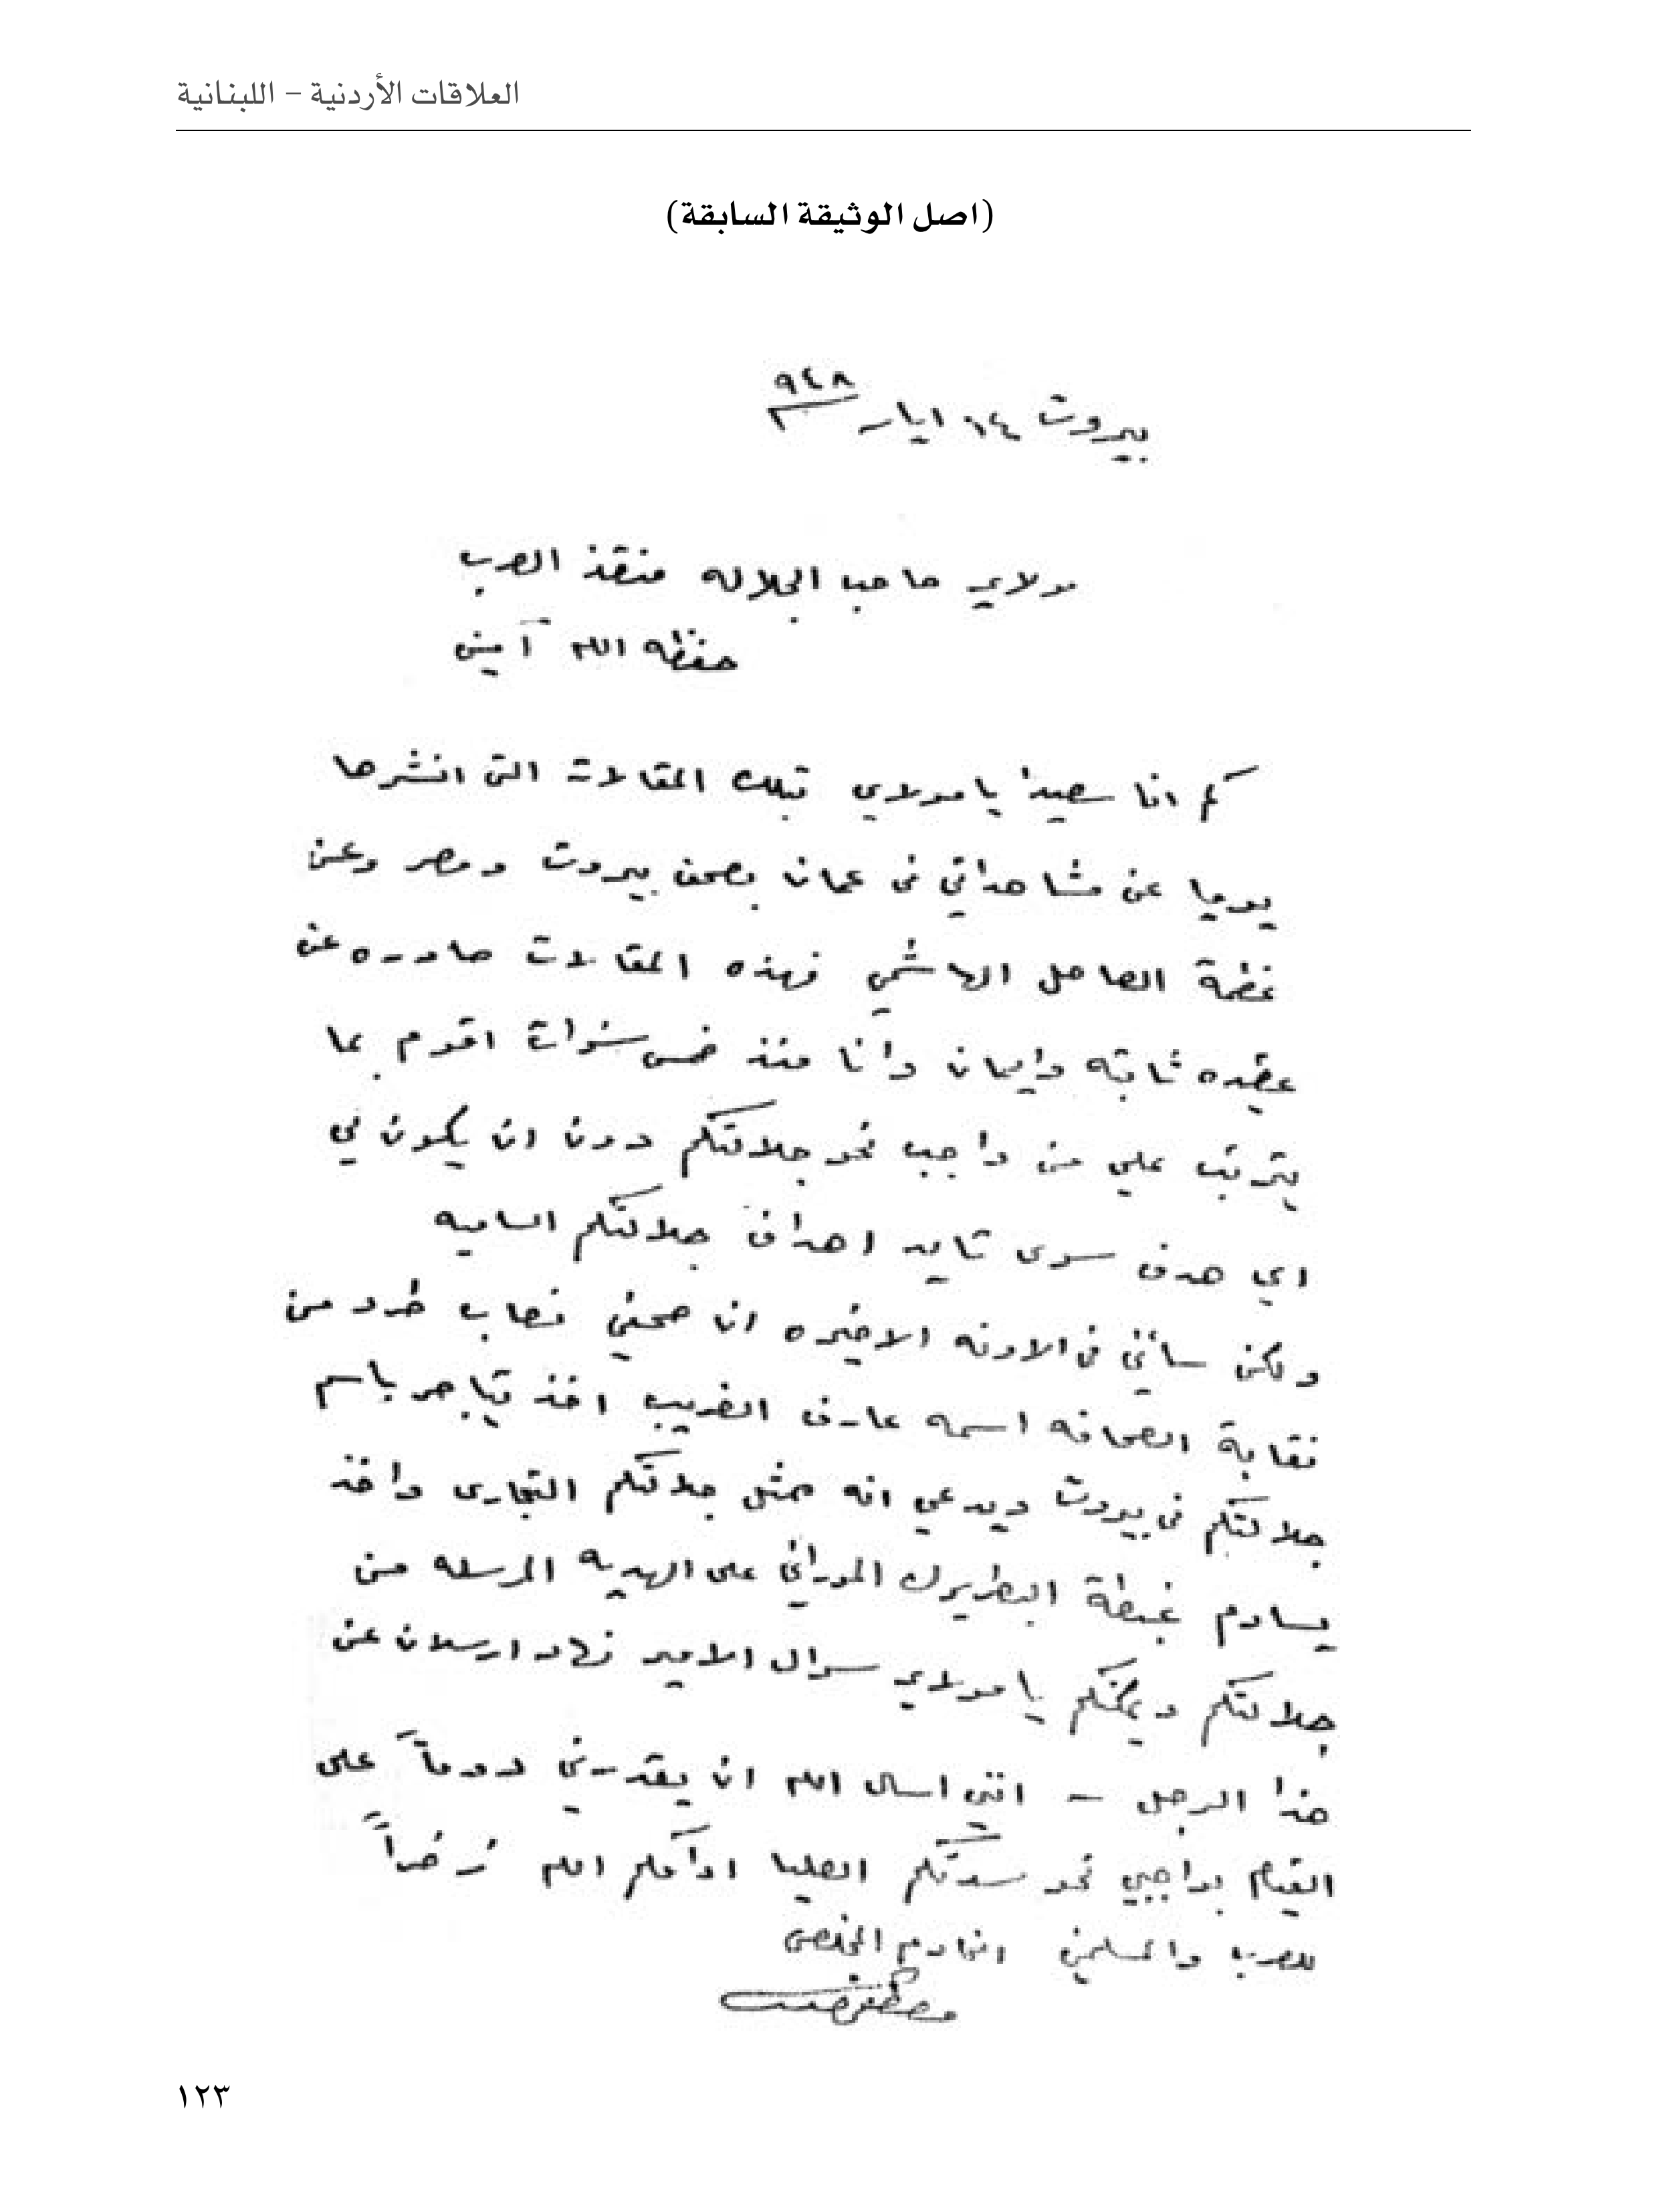 العلاقات الأردنية – اللبنانية
(اصل الوثيقة السابقة)
بيروت ١٤ ايار ٩٤٨
مولاي صاحب الجلاله منقذ العرب
حفظه الله آمين
كم انا سعيدا يا مولاي بتلك المقالات التى انشرها
يوميا عن مشاهداتي فى عمان بصحف بيروت ومصر وعن
عظمة العاهل الهاشمي فهذه المقالات صادره عن
عقيده ثابته وايمان وانا منذ خمس سنوات اقوم بما
يترتب علي من واجب نحو جلالتكم دون ان يكون لي
اي هدف سوى تاييد اهداف جلالتكم الساميه
ولكن سأني فى الاونه الاخيره ان صحفي نصاب طرد من
نقابة الصحافه اسمه عارف الغريب اخذ يتاجر باسم
جلالتكم فى بيروت ويدعي انه ممثل جلالتكم التجارى واخذ
يساوم غبطة البطريرك الموراني على الهديه المرسله من
جلالتكم ويمكنكم يا مولاي سوال الامير نهاد ارسلان عن
هذا الرجل – انني اسال الله ان يقدرني دوماً على
القيام بواجبي نحو سدتكم العليا ادامكم الله زخراً
للعرب والمسلمين الخادم المخلص
١٢٣